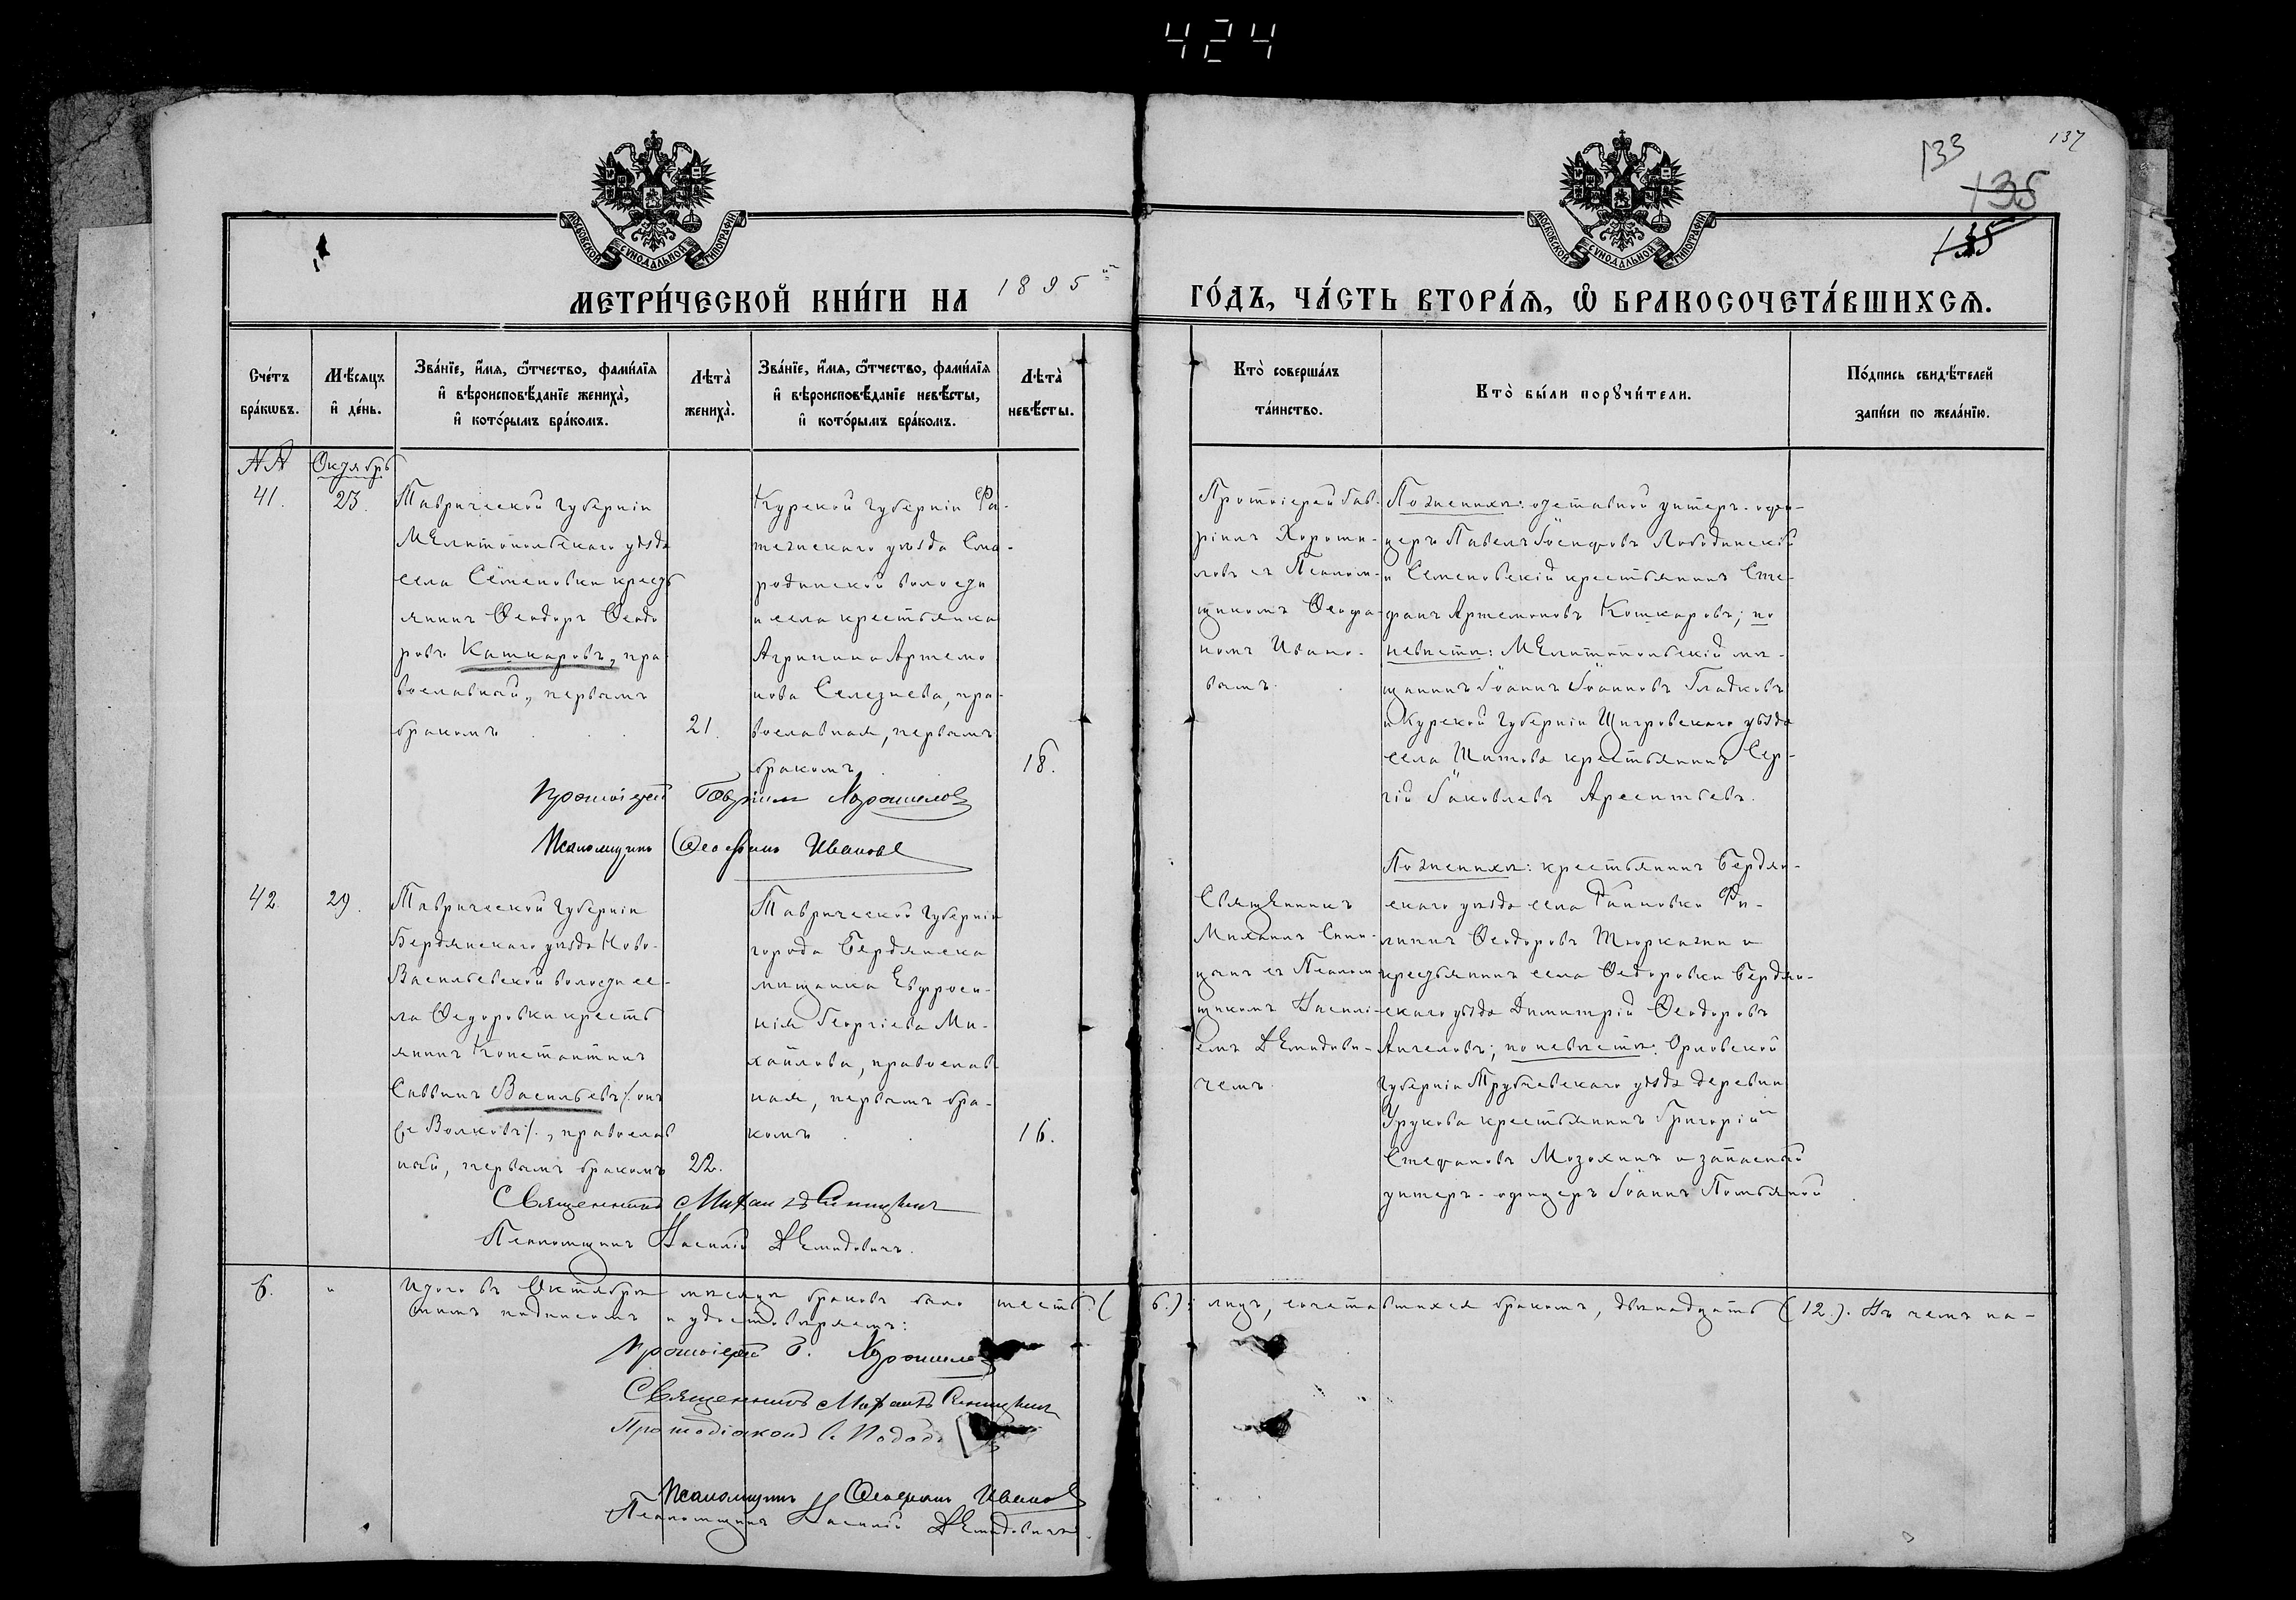 424
137
133
135
135
МОСКОВСКОЙ СѴНОДАЛЬНОЙ ТИПОГРАФІИ
МОСКОВСКОЙ СѴНОДАЛЬНОЙ ТИПОГРАФІИ
МЕТРИ́ЧЕСКОЙ КНИ́ГИ НА 1895й
ГО́ДЪ, ЧА́СТЬ ВТОРА́Ѧ, Ѽ БРАКОСОЧЕТА́ВШИХСѦ.
Сче́тъ
бра́кѡвъ.
Мѣ́сяцъ
и҆ де́нь.
Зва́нїе, и҆́мѧ, ѻ҆́тчество, фами́лїѧ
и҆ вѣроисповѣ́данїе жениха̀,
и҆ кото́рымъ бра́комъ.
Лѣта̀
жениха̀.
Зва́нїе, и҆́мѧ, ѻ҆́тчество, фами́лїѧ
и҆ вѣроисповѣ́данїе невѣ́сты,
и҆ кото́рымъ бра́комъ.
Лѣта̀
невѣ́сты.
Кто̀ соверша́лъ
та́инство.
Кто̀ бы́ли порꙋчи́тели.
По́дпись свидѣ́телей
запи́си по жела́нїю.
№№
Октябрь
41.
23.
Таврической губерніи
Мелитопольскаго уѣзда
села Семеновки кресть
янинъ Ѳеодоръ Ѳеодо
ровъ Кашкаровъ, пра-
вославный, первымъ
бракомъ
21.
Курской губерніи Фа-
тежскаго уѣзда Смо-
родинской волости
и села крестьянка
Агрипина Артемо
нова Селезнева, пра-
вославная, первымъ
бракомъ
18.
Протоіерей Гав-
ріилъ Хороши-
ловъ съ Псалом-
щикомъ Ѳеофа-
номъ Ивано-
вымъ.
По женихѣ: отставной унтеръ-офи-
церъ Павелъ Іосифовъ Лободинскій
и Семеновскій крестьянинъ Сте-
фанъ Артемоновъ Кошкаровъ; по
невѣстѣ: Мелитопольскій мѣ-
щанинъ Іоаннъ Іоанновъ Гладковъ
и Курской губерніи Щигровскаго уѣзда
села Титова крестьянинъ Сер-
гій Іаковлевъ Арсентьевъ.
Протоіерей Гавріилъ Хорошиловъ
Псаломщикъ Ѳеофанъ Ивановъ
42.
29.
Таврической губерніи
Бердянскаго уѣзда Ново-
Васильевской волости се-
ла Ѳедоровки кресть
янинъ Константинъ
Саввинъ Васильевъ /: онъ
же Волковъ :/, православ
ный, первымъ бракомъ
22.
Таврической губерніи
города Бердянска
мѣщанка Евфроси-
нія Георгіева Ми-
хайлова, православ-
ная, первымъ бра-
комъ
16.
Священникъ
Михаилъ Сини-
цынъ съ Псалом-
щикомъ Василі-
емъ Демидови-
чемъ
По женихѣ: крестьянинъ Бердян-
скаго уѣзда села Райновки Фи-
липпъ Ѳеодоровъ Тюркечи и
крестьянинъ села Ѳедоровки Бердян-
скаго уѣзда Димитрій Ѳеодоровъ
Ангеловъ; по невѣстѣ: Орловской
губерніи Трубчевскаго уѣзда деревни
Урукова крестьянинъ Григорій
Стефановъ Мозохинъ и запасный
унтеръ-офицеръ Іоаннъ Помьяной
Священникъ Михаилъ Синицынъ
Псаломщикъ Василій Демидовичъ.
6. " Итого въ Октябрѣ мѣсяцѣ браковъ было шесть (6.); лицъ, сочетавшихся бракомъ, двѣнадцать (12.). Въ чемъ на-
шимъ подписомъ и удостовѣряемъ:
Протоіерей Г. Хорошиловъ
Священникъ Михаилъ Синицынъ
Протодіаконъ
Псаломщикъ Ѳеофанъ Ивановъ
Псаломщикъ Василій Демидовичъ.